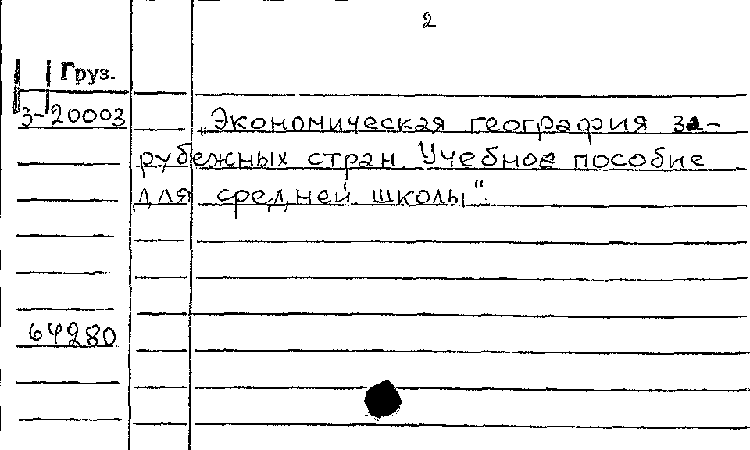 2
Груз.
3-20003
„Экономическая география за-
рубежных стран. Учебное пособие
для средней школы“.
64280